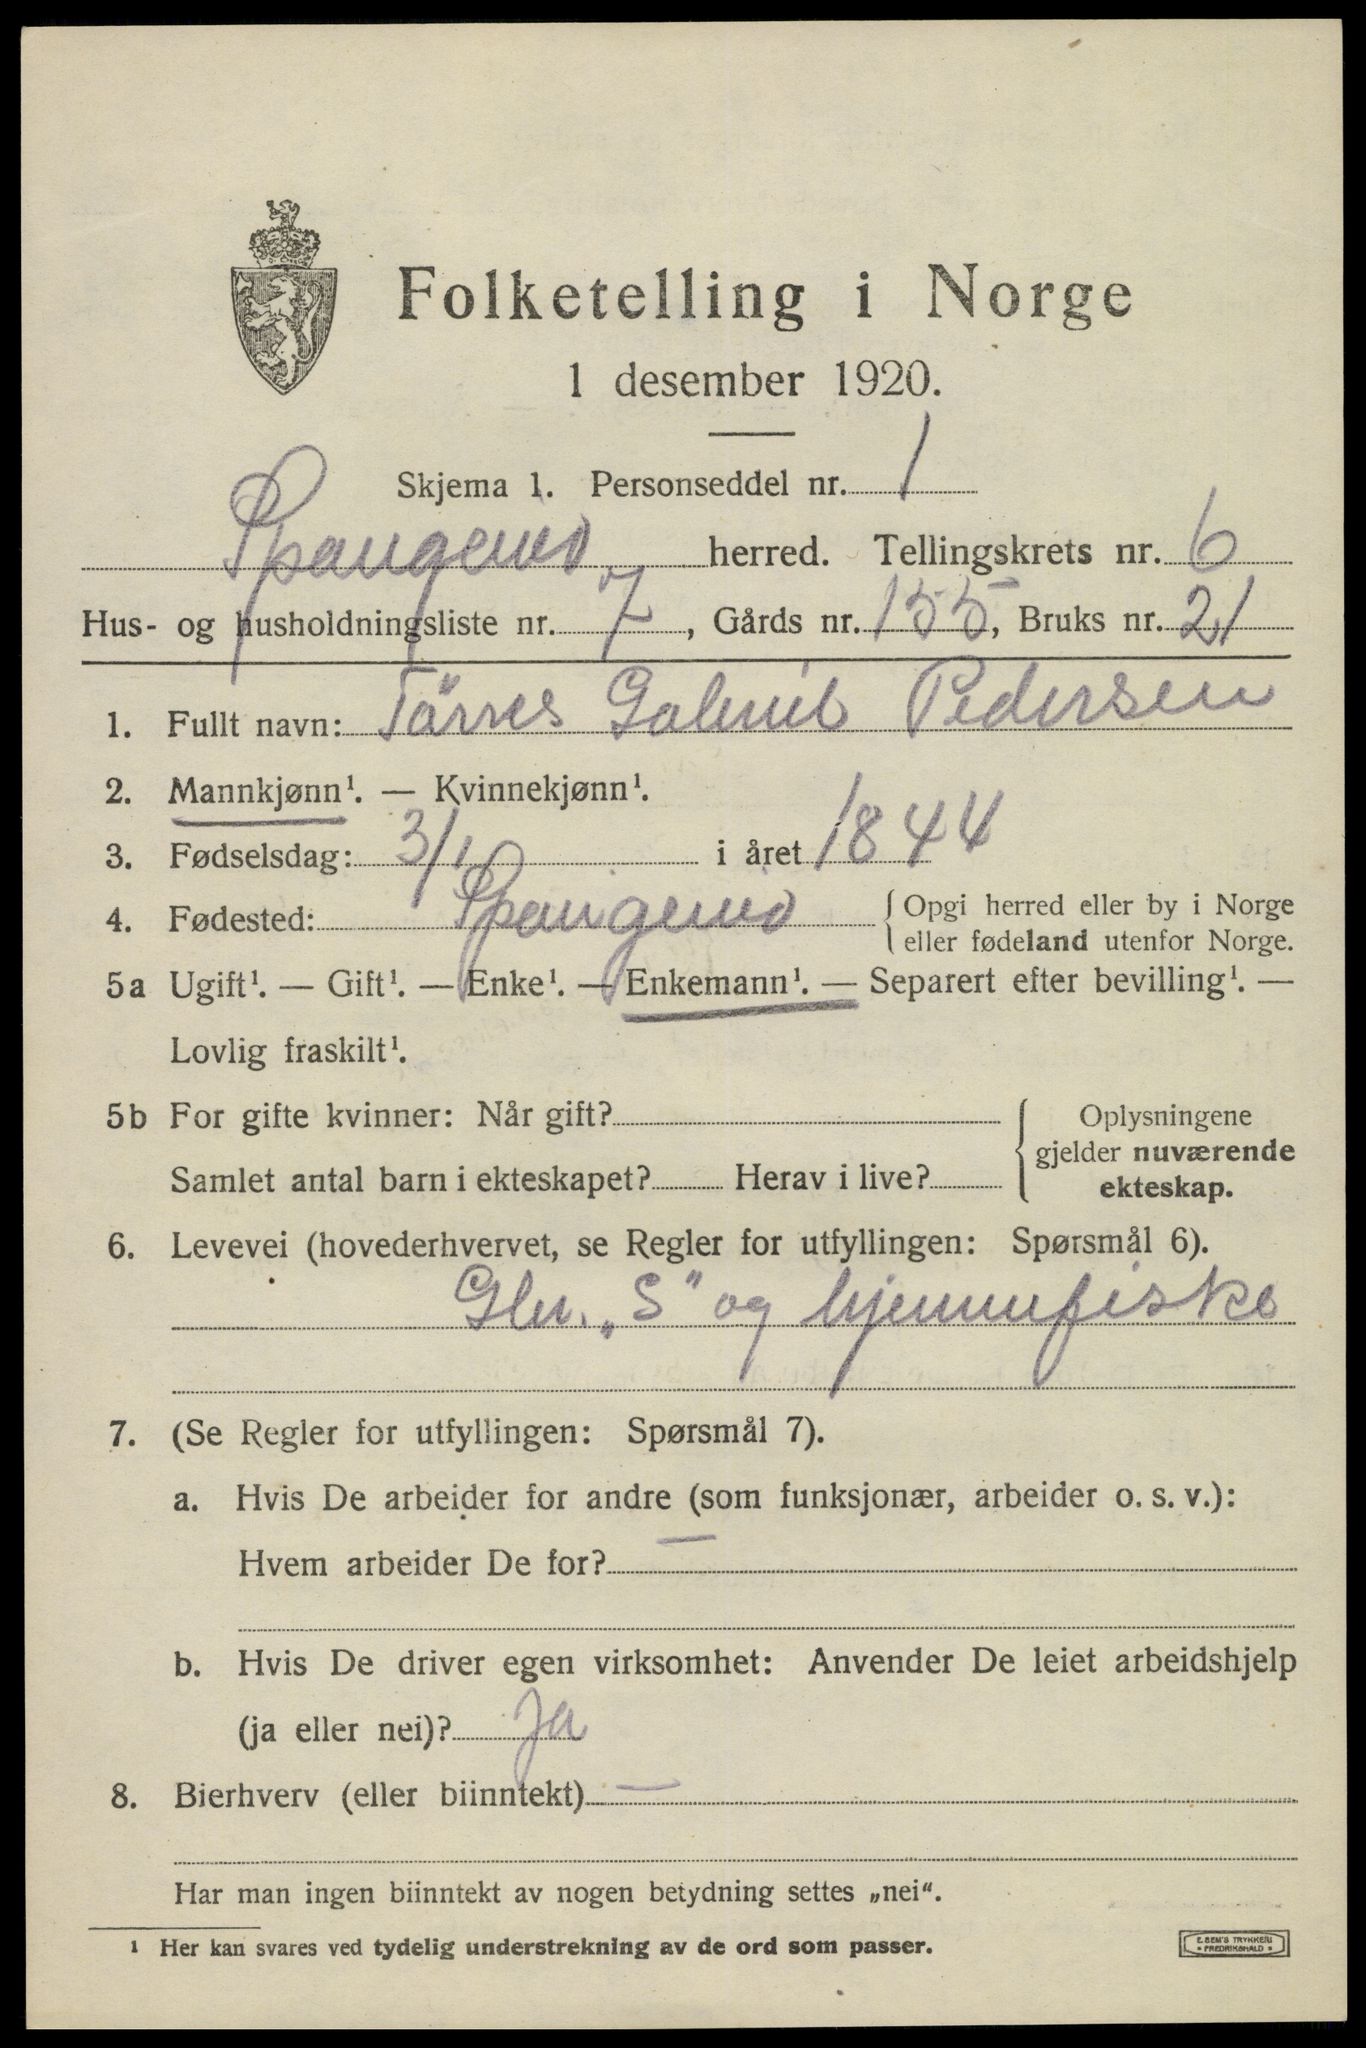 Folketelling i Norge
1 desember 1920.
Skjema 1. Personseddel nr. 1
Spangereid herred. Tellingskrets nr. 6
Hus- og husholdningsliste nr. 7, Gårds nr. 155, Bruks nr. 21
1. Fullt navn: Törres Gabriel Pedersen
2. Mannkjønn¹. — Kvinnekjønn¹.
3. Fødselsdag: 3/1 i året 1844
4. Fødested: Spangereid { Opgi herred eller by i Norge
eller fødeland utenfor Norge.
5a Ugift¹. — Gift¹. — Enke¹. — Enkemann¹. — Separert efter bevilling¹. —
Lovlig fraskilt¹.
5b For gifte kvinner: Når gift?
Samlet antal barn i ekteskapet? Herav i live?
{ Oplysningene
gjelder nuværende
ekteskap.
6. Levevei (hovederhvervet, se Regler for utfyllingen: Spørsmål 6).
Gbr. „S" og hjemmefiske
7. (Se Regler for utfyllingen: Spørsmål 7).
a. Hvis De arbeider for andre (som funksjonær, arbeider o. s. v.):
Hvem arbeider De for? —
b. Hvis De driver egen virksomhet: Anvender De leiet arbeidshjelp
(ja eller nei)? Ja
8. Bierhverv (eller biinntekt) —
Har man ingen biinntekt av nogen betydning settes „nei".
¹ Her kan svares ved tydelig understrekning av de ord som passer.
E. SEM'S TRYKKERI
* FREDRIKSHALD *